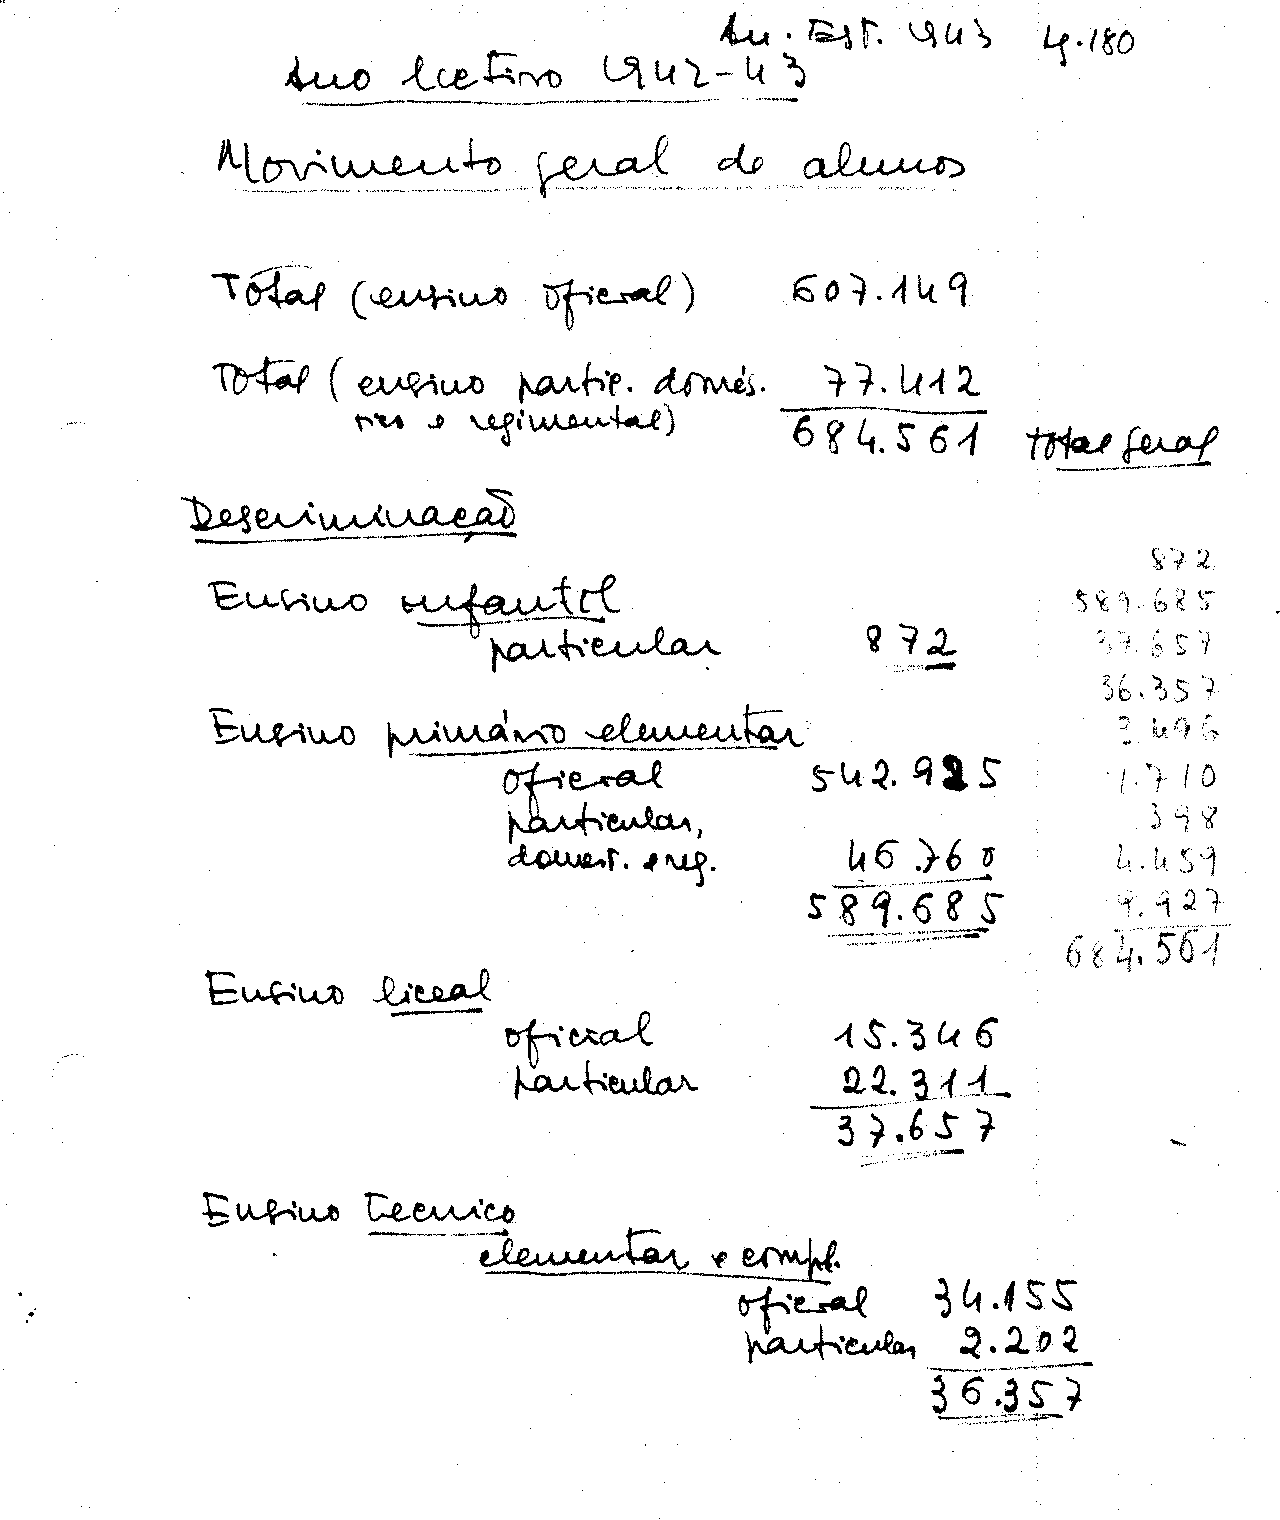 An. Est. 1943 p. 180
Ano lectivo 1942-43
Movimento geral de alunos
Total (ensino oficial) 607.149
Total (ensino partic. domés.
tico e regimental) 77.412
684.561 total geral
Descriminação
Ensino infantil
particular 872
Ensino primário elementar
oficial 542.925
particular,
domest. e reg. 46.760
589.685
Ensino liceal
oficial 15.346
particular 22.311
37.657
Ensino tecnico
elementar e compl.
oficial 34.155
particular 2.202
36.357
872
589.685
37.657
36.357
3.496
1.710
398
4.459
9.927
684.561